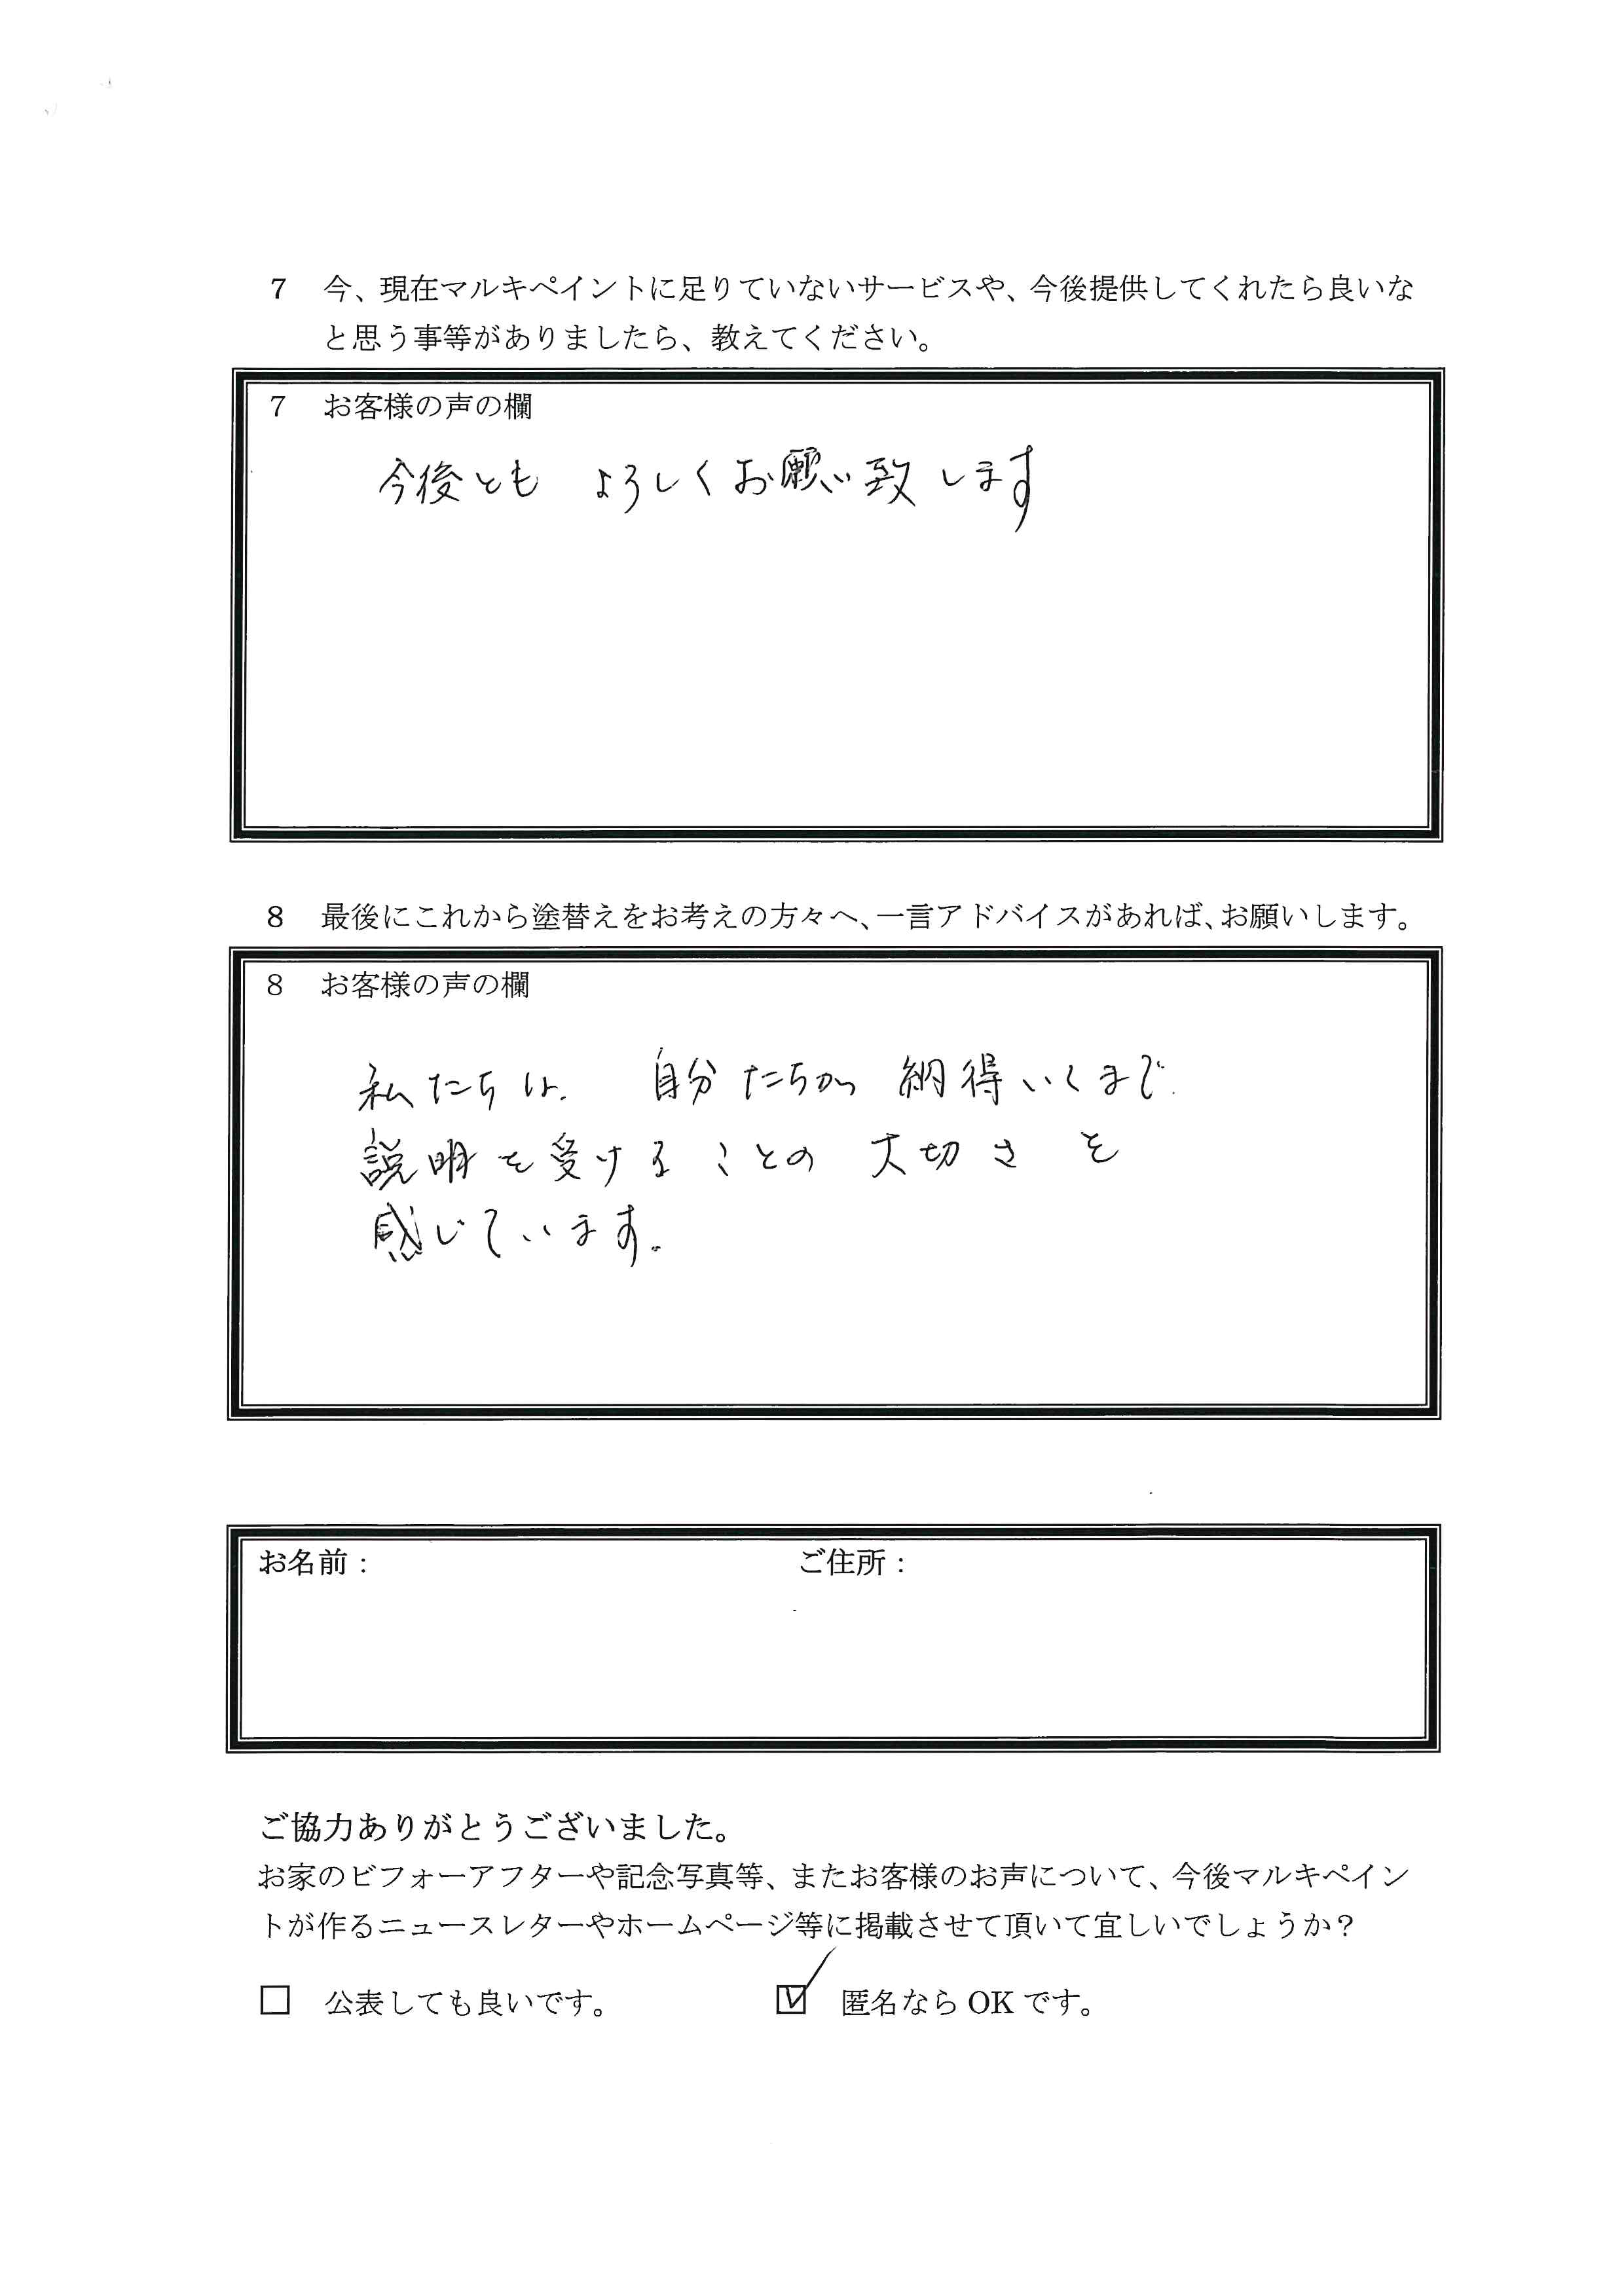 7 今、現在マルキペイントに足りていないサービスや、今後提供してくれたら良いな
と思う事等がありましたら、教えてください。
7 お客様の声の欄
今後とも よろしくお願い致します
8 最後にこれから塗替えをお考えの方々へ、一言アドバイスがあれば、お願いします。
8 お客様の声の欄
私たちは、 自分たちが 納得いくまで
説明を受けることの 大切さを
感じています。
お名前： ご住所：
ご協力ありがとうございました。
お家のビフォーアフターや記念写真等、またお客様のお声について、今後マルキペイン
トが作るニュースレターやホームページ等に掲載させて頂いて宜しいでしょうか？
□ 公表しても良いです。 ☑ 匿名なら OK です。